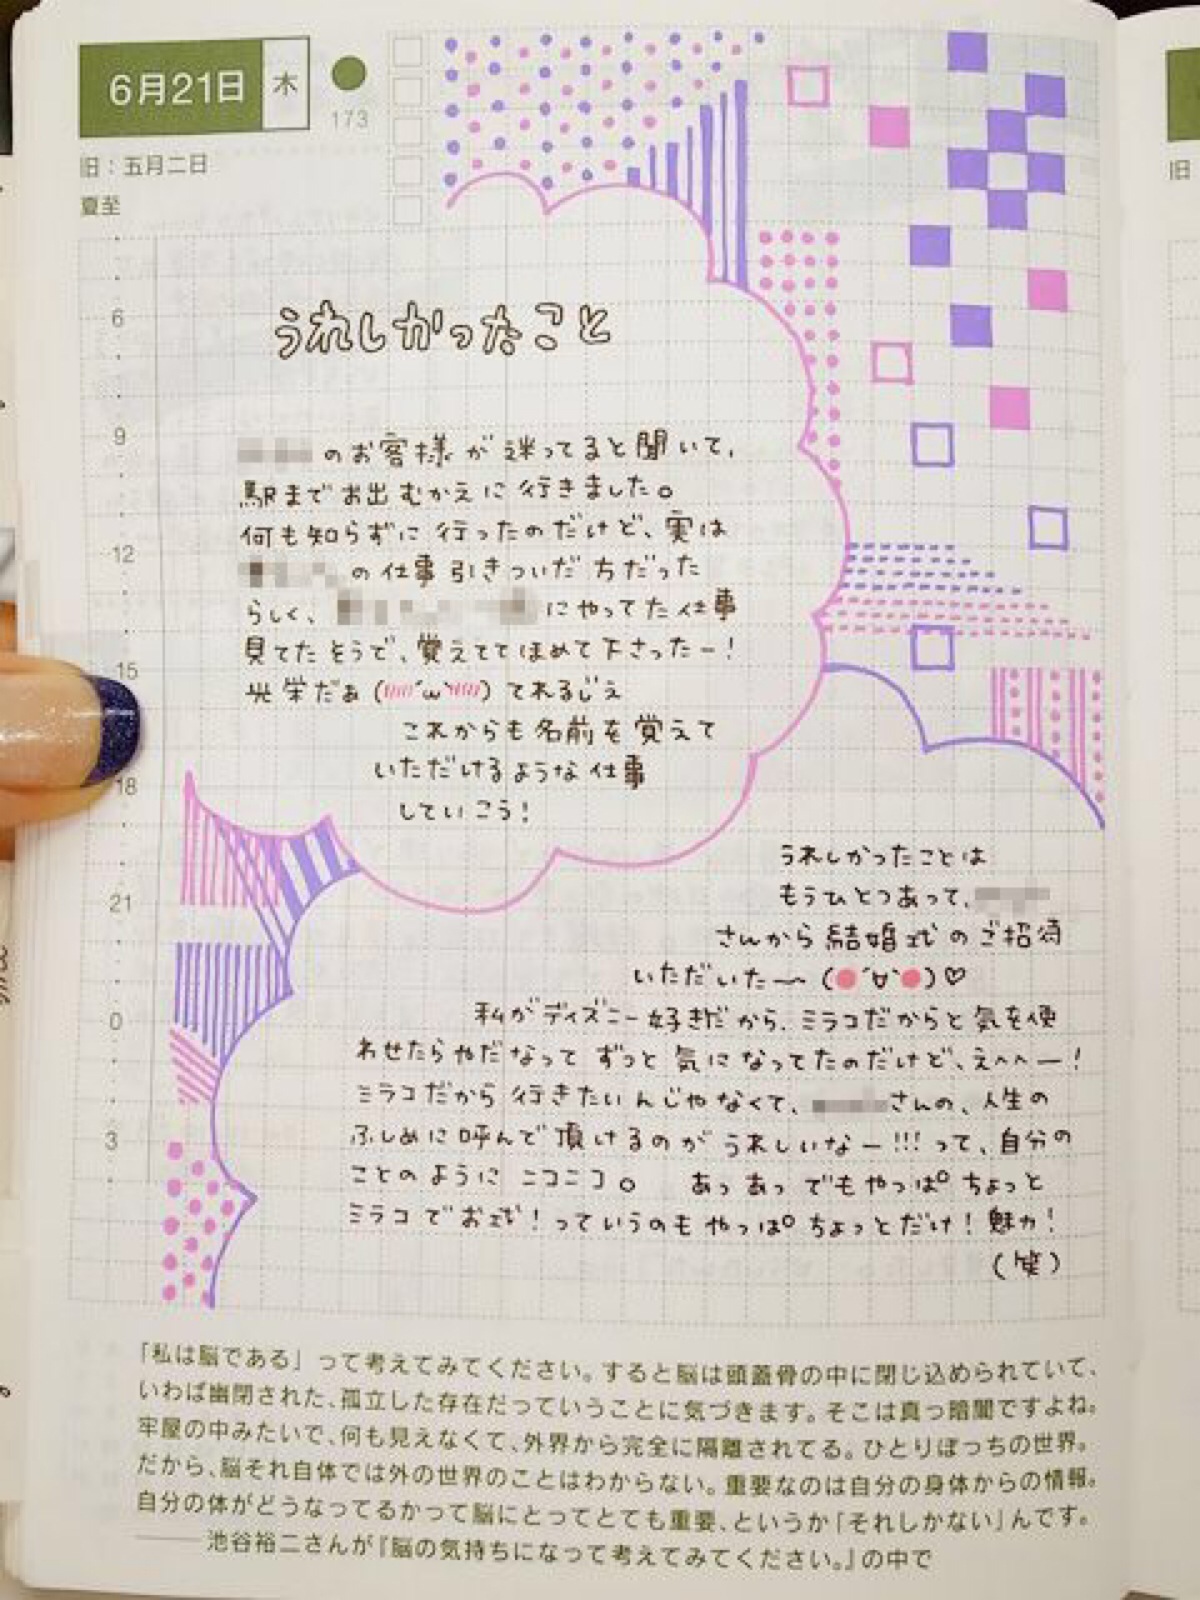 6月21日 木
173
旧：五月二日
夏至
旧
6
9
12
15
18
21
0
3
うれしかったこと
のお客様が迷ってると聞いて、
駅までお出むかえに行きました。
何も知らずに行ったのだけど、実は
の仕事引きついだ方だった
らしく、にやってた仕事
見てたそうで、覚えててほめて下さったー！
光栄だぁ(////´ω`////)てれるじぇ
これからも名前を覚えて
いただけるような仕事
していこう！
うれしかったことは
もうひとつあって、
さんから結婚式のご招待
いただいた〜(●´∀`●)♡
私がディズニー好きだから、ミラコだからと気を使
わせたらやだなって ずっと気になってたのだけど、えへへー！
ミラコだから行きたいんじゃなくて、さんの、人生の
ふしめに呼んで頂けるのがうれしいなー!!!って、自分の
ことのようにニコニコ。 あっあっでもやっぱちょっと
ミラコでお式！っていうのもやっぱちょっとだけ！魅力！
(笑)
「私は脳である」って考えてみてください。すると脳は頭蓋骨の中に閉じ込められていて、
いわば幽閉された、孤立した存在だっていうことに気づきます。そこは真っ暗闇ですよね。
牢屋の中みたいで、何も見えなくて、外界から完全に隔離されてる。ひとりぼっちの世界。
だから、脳それ自体では外の世界のことはわからない。重要なのは自分の身体からの情報。
自分の体がどうなってるかって脳にとってとても重要、というか「それしかない」んです。
——池谷裕二さんが『脳の気持ちになって考えてみてください。』の中で